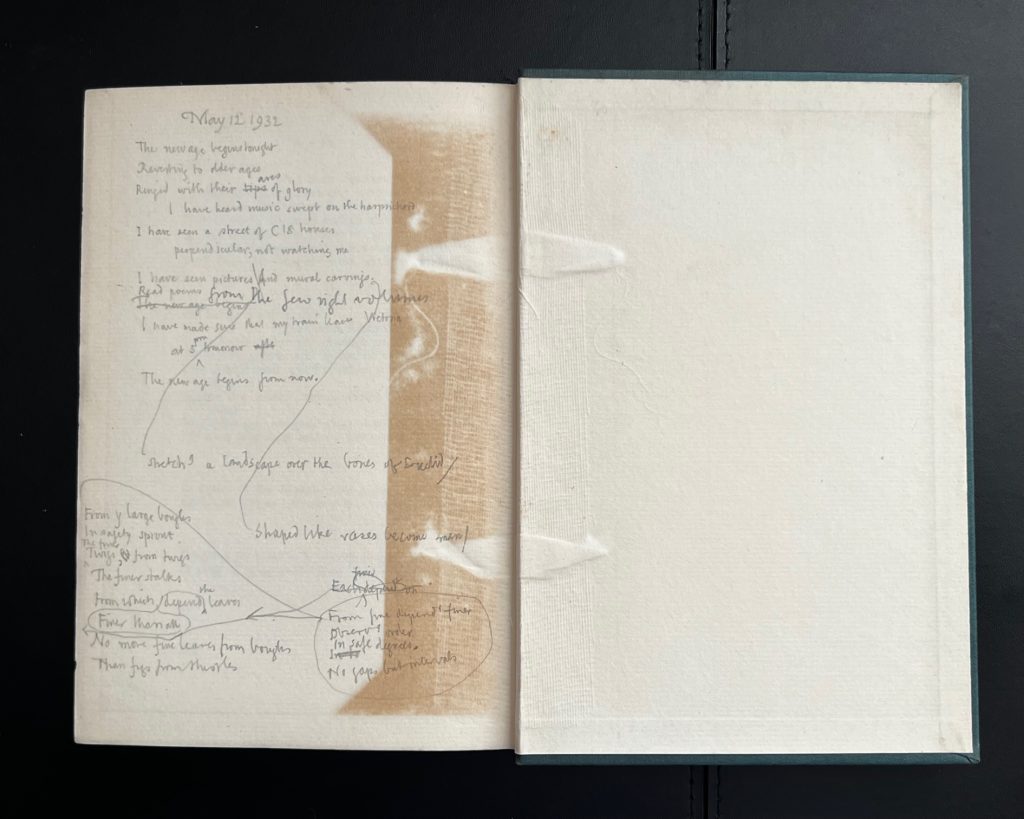 May 12 1932
The new age begins tonight
Reverting to older ages
Ringed with their tops arcs of glory
I have heard music swept on the harpsichord
I have seen a street of C18 houses
perpendicular, not watching me
I have seen pictures and mural carvings.
Read poems from the few right volumes
The new age begins
I have made sure that my train leaves Victoria
at 5 pm tomorrow
The new age begins from now.
a landscape over the bones of
shaped like vases become men/
From y large boughs
In safety sprout
The finer
Twigs, & from twigs
The finer stalks
From which depend the leaves
Finer than all
No more fine leaves from boughs
Than figs from thistles
finer
Each depend on
From fine depend finer
Observ order
In safe degrees.
No gaps but intervals